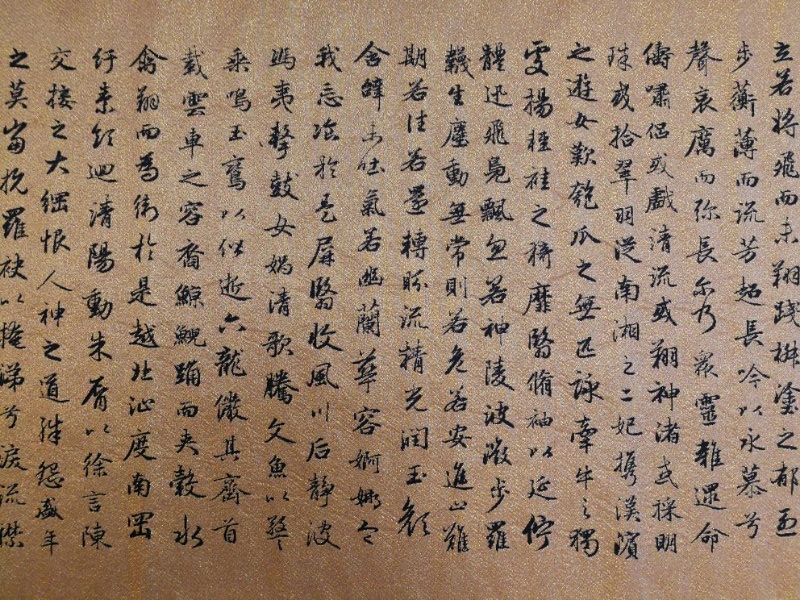 立若將飛而未翔踐椒塗之郁烈
步蘅薄而流芳超長吟以永慕兮
聲哀厲而彌長爾乃眾靈雜遝命
儔嘯侶或戲清流或翔神渚或採明
珠或拾翠羽從南湘之二妃攜漢濱
之遊女歎匏瓜之無匹詠牽牛之獨
處揚輕袿之猗靡翳脩袖以延佇
體迅飛鳧飄忽若神陵波微步羅
韈生塵動無常則若危若安進止難
期若往若還轉眄流精光潤玉顏
含辭未吐氣若幽蘭華容婀娜令
我忘飡於是屏翳收風川后靜波
馮夷擊鼓女媧清歌騰文魚以警
乘鳴玉鸞以偕逝六龍儼其齊首
載雲車之容裔鯨鯢踊而夾轂水
禽翔而為衛於是越北沚度南岡
紆素領迴清陽動朱脣以徐言陳
交接之大綱恨人神之道殊怨盛年
之莫當抗羅袂以掩涕兮淚流襟